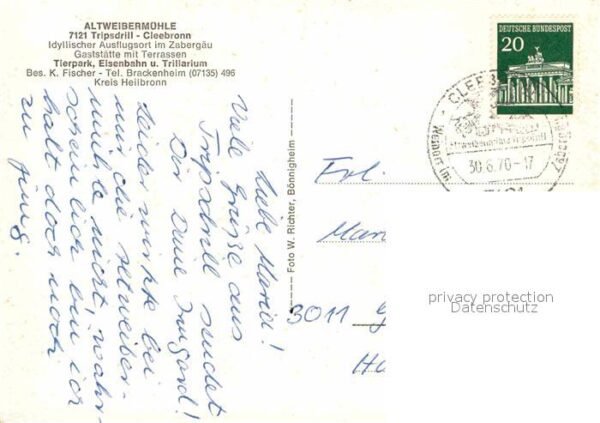 ALTWEIBERMÜHLE
7121 Tripsdrill - Cleebronn
Idyllischer Ausflugsort im Zabergäu
Gaststätte mit Terrassen
Tierpark, Eisenbahn u. Trillarium
Bes. K. Fischer - Tel. Brackenheim (07135) 496
Kreis Heilbronn
Liebe Maria!
Viele Grüsse aus
Tripsdrill sendet
Dir Deine Irmgard!
Leider wirkte bei
mir die Altweiber-
mühle nicht, wahr-
scheinlich bin ich
halt doch noch
zu jung.
Foto W. Richter, Bönnigheim
DEUTSCHE BUNDESPOST
20
CLEEB
Altweibermühle Tripsdrill
30.6.70-17
Frl.
Mar
3011
privacy protection
Datenschutz